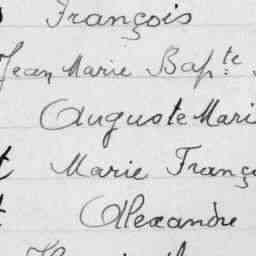 François
Jean Marie Bapte
Auguste Mari
t Marie Franç
t Alexandre